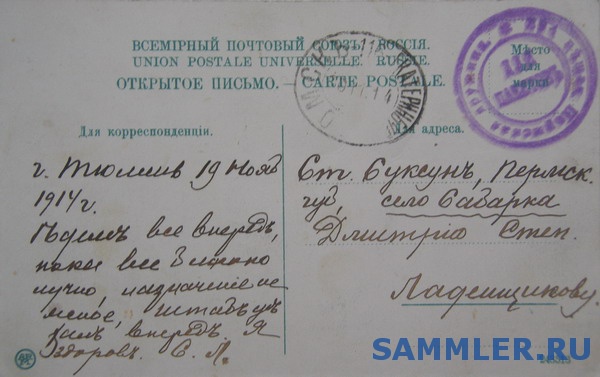 ВСЕМІРНЫЙ ПОЧТОВЫЙ СОЮЗЪ. РОССІЯ.
UNION POSTALE UNIVERSELLE. RUSSIE.
ОТКРЫТОЕ ПИСЬМО. — CARTE POSTALE.
Мѣсто
для
марки
ОМСК
Для корреспонденціи.
Для адреса.
г. Тюмень 19 Нояб
1914 г.
Ѣдемъ все впередъ,
пока все благопо
лучно, назначение не
, штабъ уѣ
халъ впередъ. Я
Здоровъ. С. Л.
Ст. Суксунъ, Пермск.
губ, село Сабарка
Дмитрію Степ.
Ладейщикову.
SAMMLER.RU